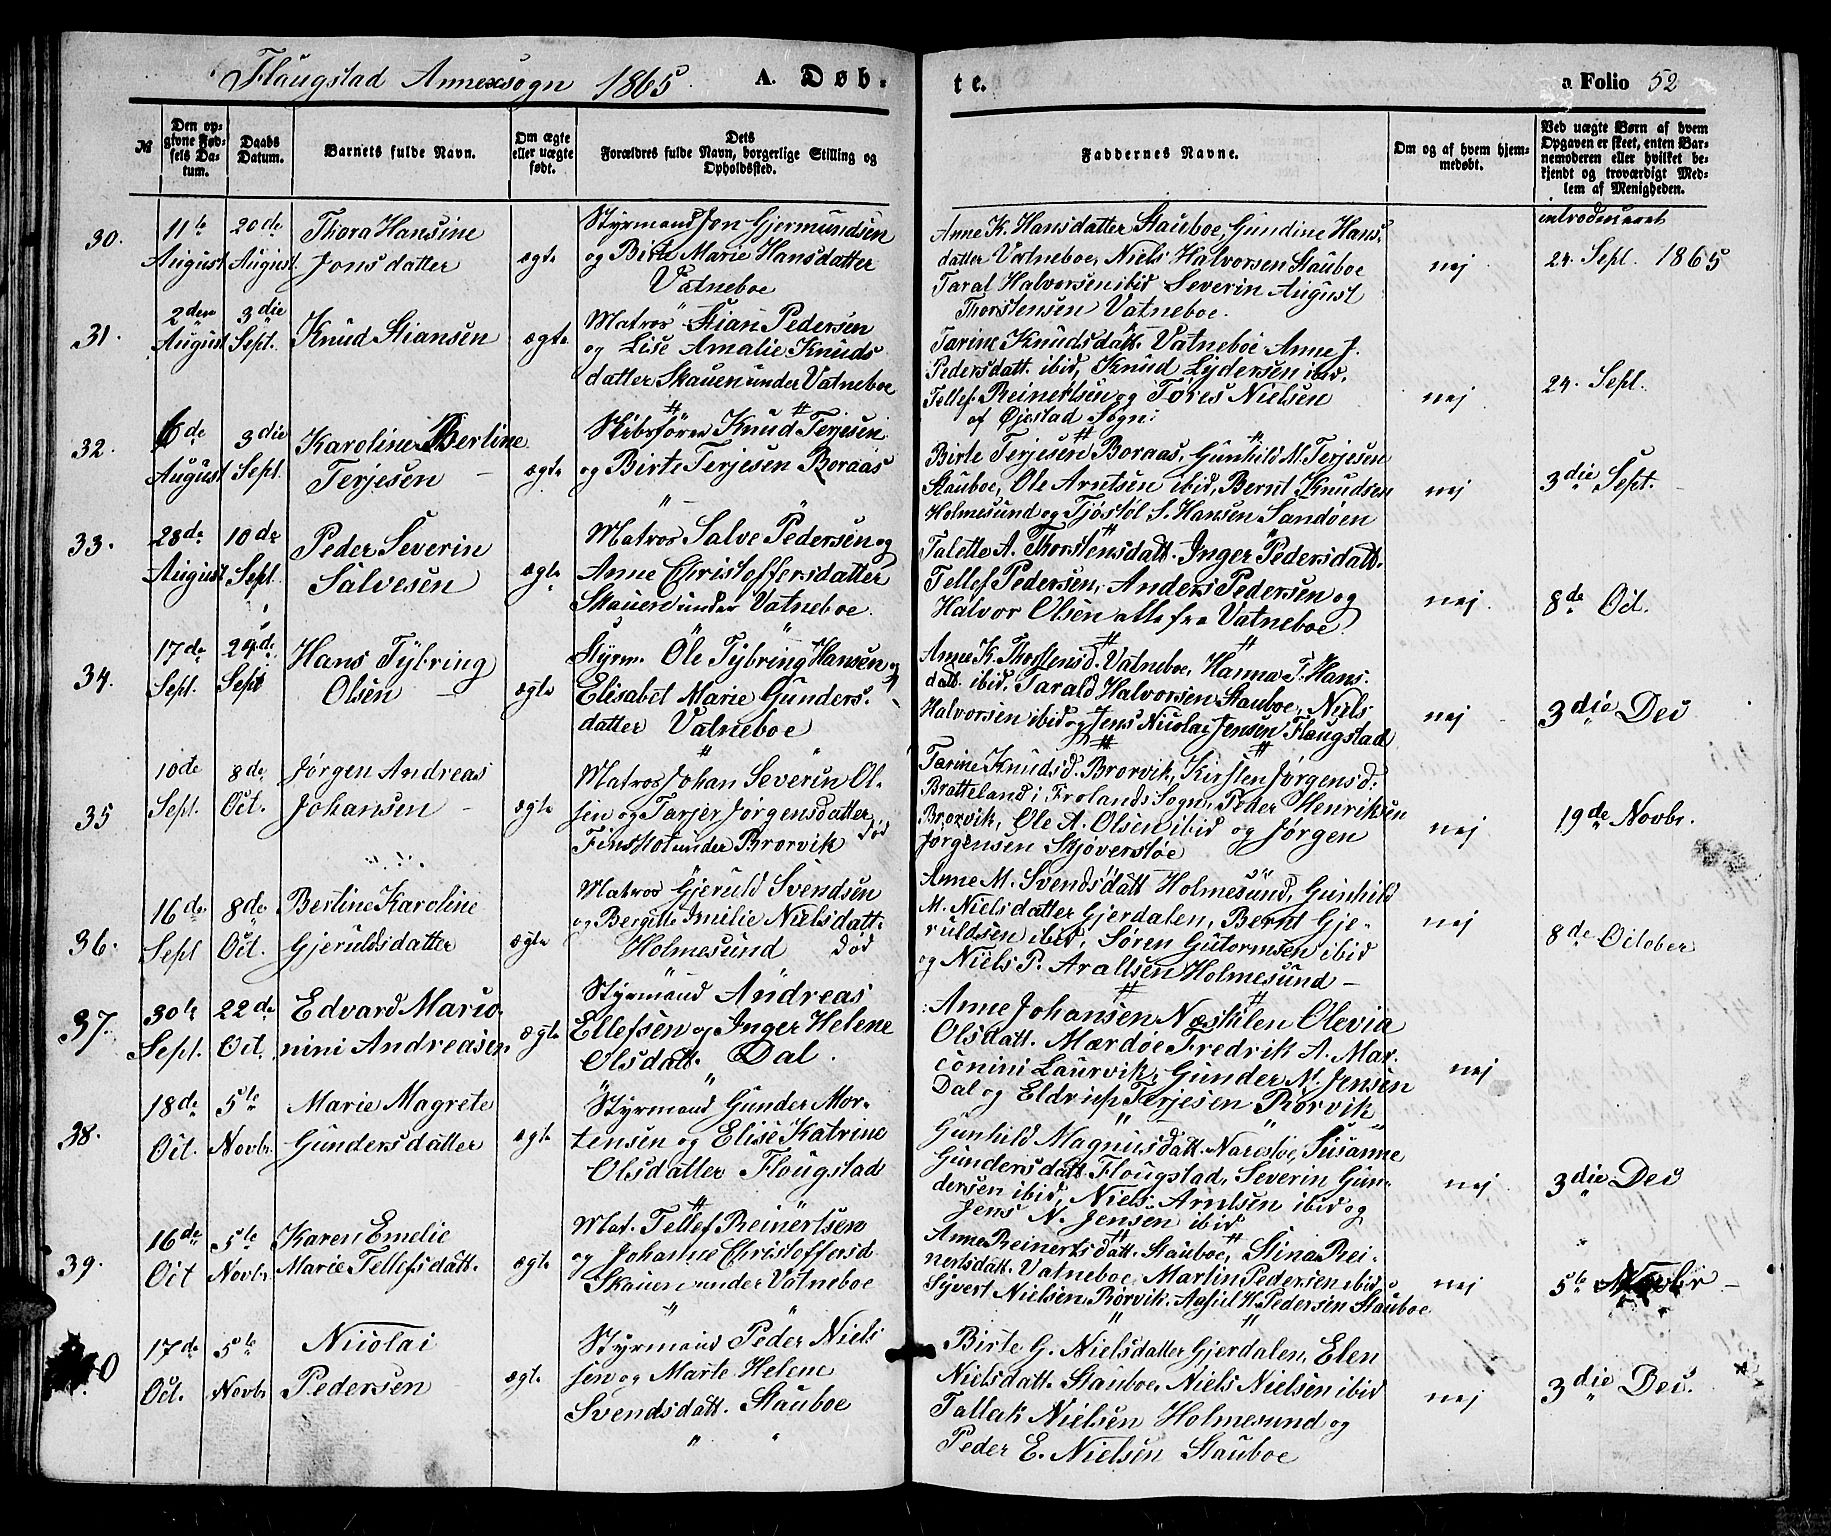 Flaugstad Annexsogn 1865. A. Døb- te. a Folio 52
№
Den op-
givne Fød-
sels Da-
tum.
Daabs
Datum.
Barnets fulde Navn.
Om ægte
eller uægte
født.
Dets
Forældres fulde Navn, borgerlige Stilling og
Opholdssted.
Faddernes Navne.
Om og af hvem hjem-
medøbt.
Ved uægte Børn af hvem
Opgaven er skeet, enten Bar-
nemoderen eller hvilket be-
kjendt og troværdigt Med-
lem af Menigheden.
30.
11te
August
20de
August.
Thora Hansine
Jonsdatter
ægte
Styrmand Jon Gjermundsen
og Birte Marie Hansdatter
Vatneboe
Anne K. Hansdatter Stauboe, Gundine Hans-
datter Vatneboe, Niels Halvorsen Stauboe
Taral Halvorsen ibid Severin August
Thorstensen Vatneboe.
nej
introduceret
24. Sept. 1865
31.
2den
August
3die
Sept.
Knud Stiansen
ægte
Matros Stian Pedersen
og Lise Amalie Knuds
datter Skauen under Vatneboe
Tarine Knudsdatt. Vatneboe Anne J.
Pedersdatt. ibid, Knud Lydersen ibid,
Tellef Reinertsen og Tores Nielsen
af Øjestad Sogn.
nej
24. Sept.
32.
6de
August
3die
Sept.
Karoline Berline
Terjesen
ægte
Skibsfører Knud Terjesen
og Birte Terjesen Boraas
Birte Terjesen Boraas, Gunhild M. Terjesen
Stauboe, Ole Arntsen ibid, Bernt Knudsen
Holmesund og Tjøstøl S. Hansen Sandøen
nej
3die Sept.
33.
28de
August
10de
Sept.
Peder Severin
Salvesen
ægte
Matros Salve Pedersen og
Anne Christoffersdatter
Skauen under Vatneboe.
Talette A. Thorstensdatt. Inger Pedersdatt.
Tellef Pedersen, Anders Pedersen og
Halvor Olsen alle fra Vatneboe.
nej.
8de Oct.
34.
17de
Sept.
29de
Sept
Hans Tybring
Olsen
ægte
Styrm. Ole Tybring Hansen og
Elisabet Marie Gunders-
datter Vatneboe
Anne K. Thorstensd. Vatneboe, Hanna T. Hans-
datt. ibid, Tarald Halvorsen Stauboe, Niels
Halvorsen ibid og Jens Nicolai Jensen Flaugstad
nej
3die Dec
35
10de
Sept.
8de
Oct.
Jørgen Andreas
Johansen
ægte
Matros Johan Severin Ol-
sen og Tarjer Jørgensdatter
Finshot under Brorvik død
Tarine Knudsd. Brorvik, Kirsten Jørgensd.
Bratteland i Frolands Sogn, Peder Henriksen
Brorvik, Ole A. Olsen ibid og Jørgen
Jørgensen Skjoverstøe
nej
19de Novbr.
36.
16de
Sept
8de
Oct.
Berline Karoline
Gjeruldsdatter
ægte
Matros Gjeruld Svendsen
og Bergitte Emilie Nielsdatt.
Holmesund død
Anne M. Svendsdatt Holmesund, Gunhild
M. Nielsdatter Gjerdalen, Bernt Gje-
ruldsen ibid, Søren Gutormsen ibid
og Niels P. Araltsen Holmesund
nej
8de October
37.
30te
Sept.
22de
Oct.
Edvard Marco-
nini Andreasen
ægte
Styrmand Andreas
Ellefsen og Inger Helene
Olsdatt. Dal.
Anne Johansen Næskilen Olevia
Olsdatt. Mærdøe Fredrik A. Mar-
conini Laurvik, Gunder M. Jensen
Dal og Eldrup Terjesen Rørvik
nej
38.
18de
Oct.
5te
Novbr.
Marie Magrete
Gundersdatter
ægte
Styrmand Gunder Mor-
tensen og Elise Katrine
Olsdatter Flougstad
Gunhild Magnusdatt. Narestøe, Susanne
Gundersdatt Flougstad, Severin Gun-
dersen ibid, Niels Arntsen ibid og
Jens N. Jensen ibid
nej
3die Dec
39.
16de
Oct
5te
Novbr.
Karen Emelie
Marie Tellefsdatt.
ægte
Mat. Tellef Reinertsen
og Johanne Christoffersd
Skauen under Vatneboe
Anne Reinertsdatt. Stauboe, Stina Rei-
nertsdatt. Vatneboe, Martin Pedersen ibid
Syvert Nielsen Rørvik, Aasul H. Pedersen Stauboe
nej
5te Novbr
40
17de
Oct.
5te
Novbr
Nicolai
Pedersen
ægte
Styrmand Peder Niels
sen og Marte Helene
Svendsdatt. Stauboe
Birte G. Nielsdatter Gjerdalen, Elen
Nielsdatt. Stauboe, Niels Nielsen ibid
Tallak Nielsen Holmesund og
Peder E. Nielsen Stauboe
nej
3die Dec.